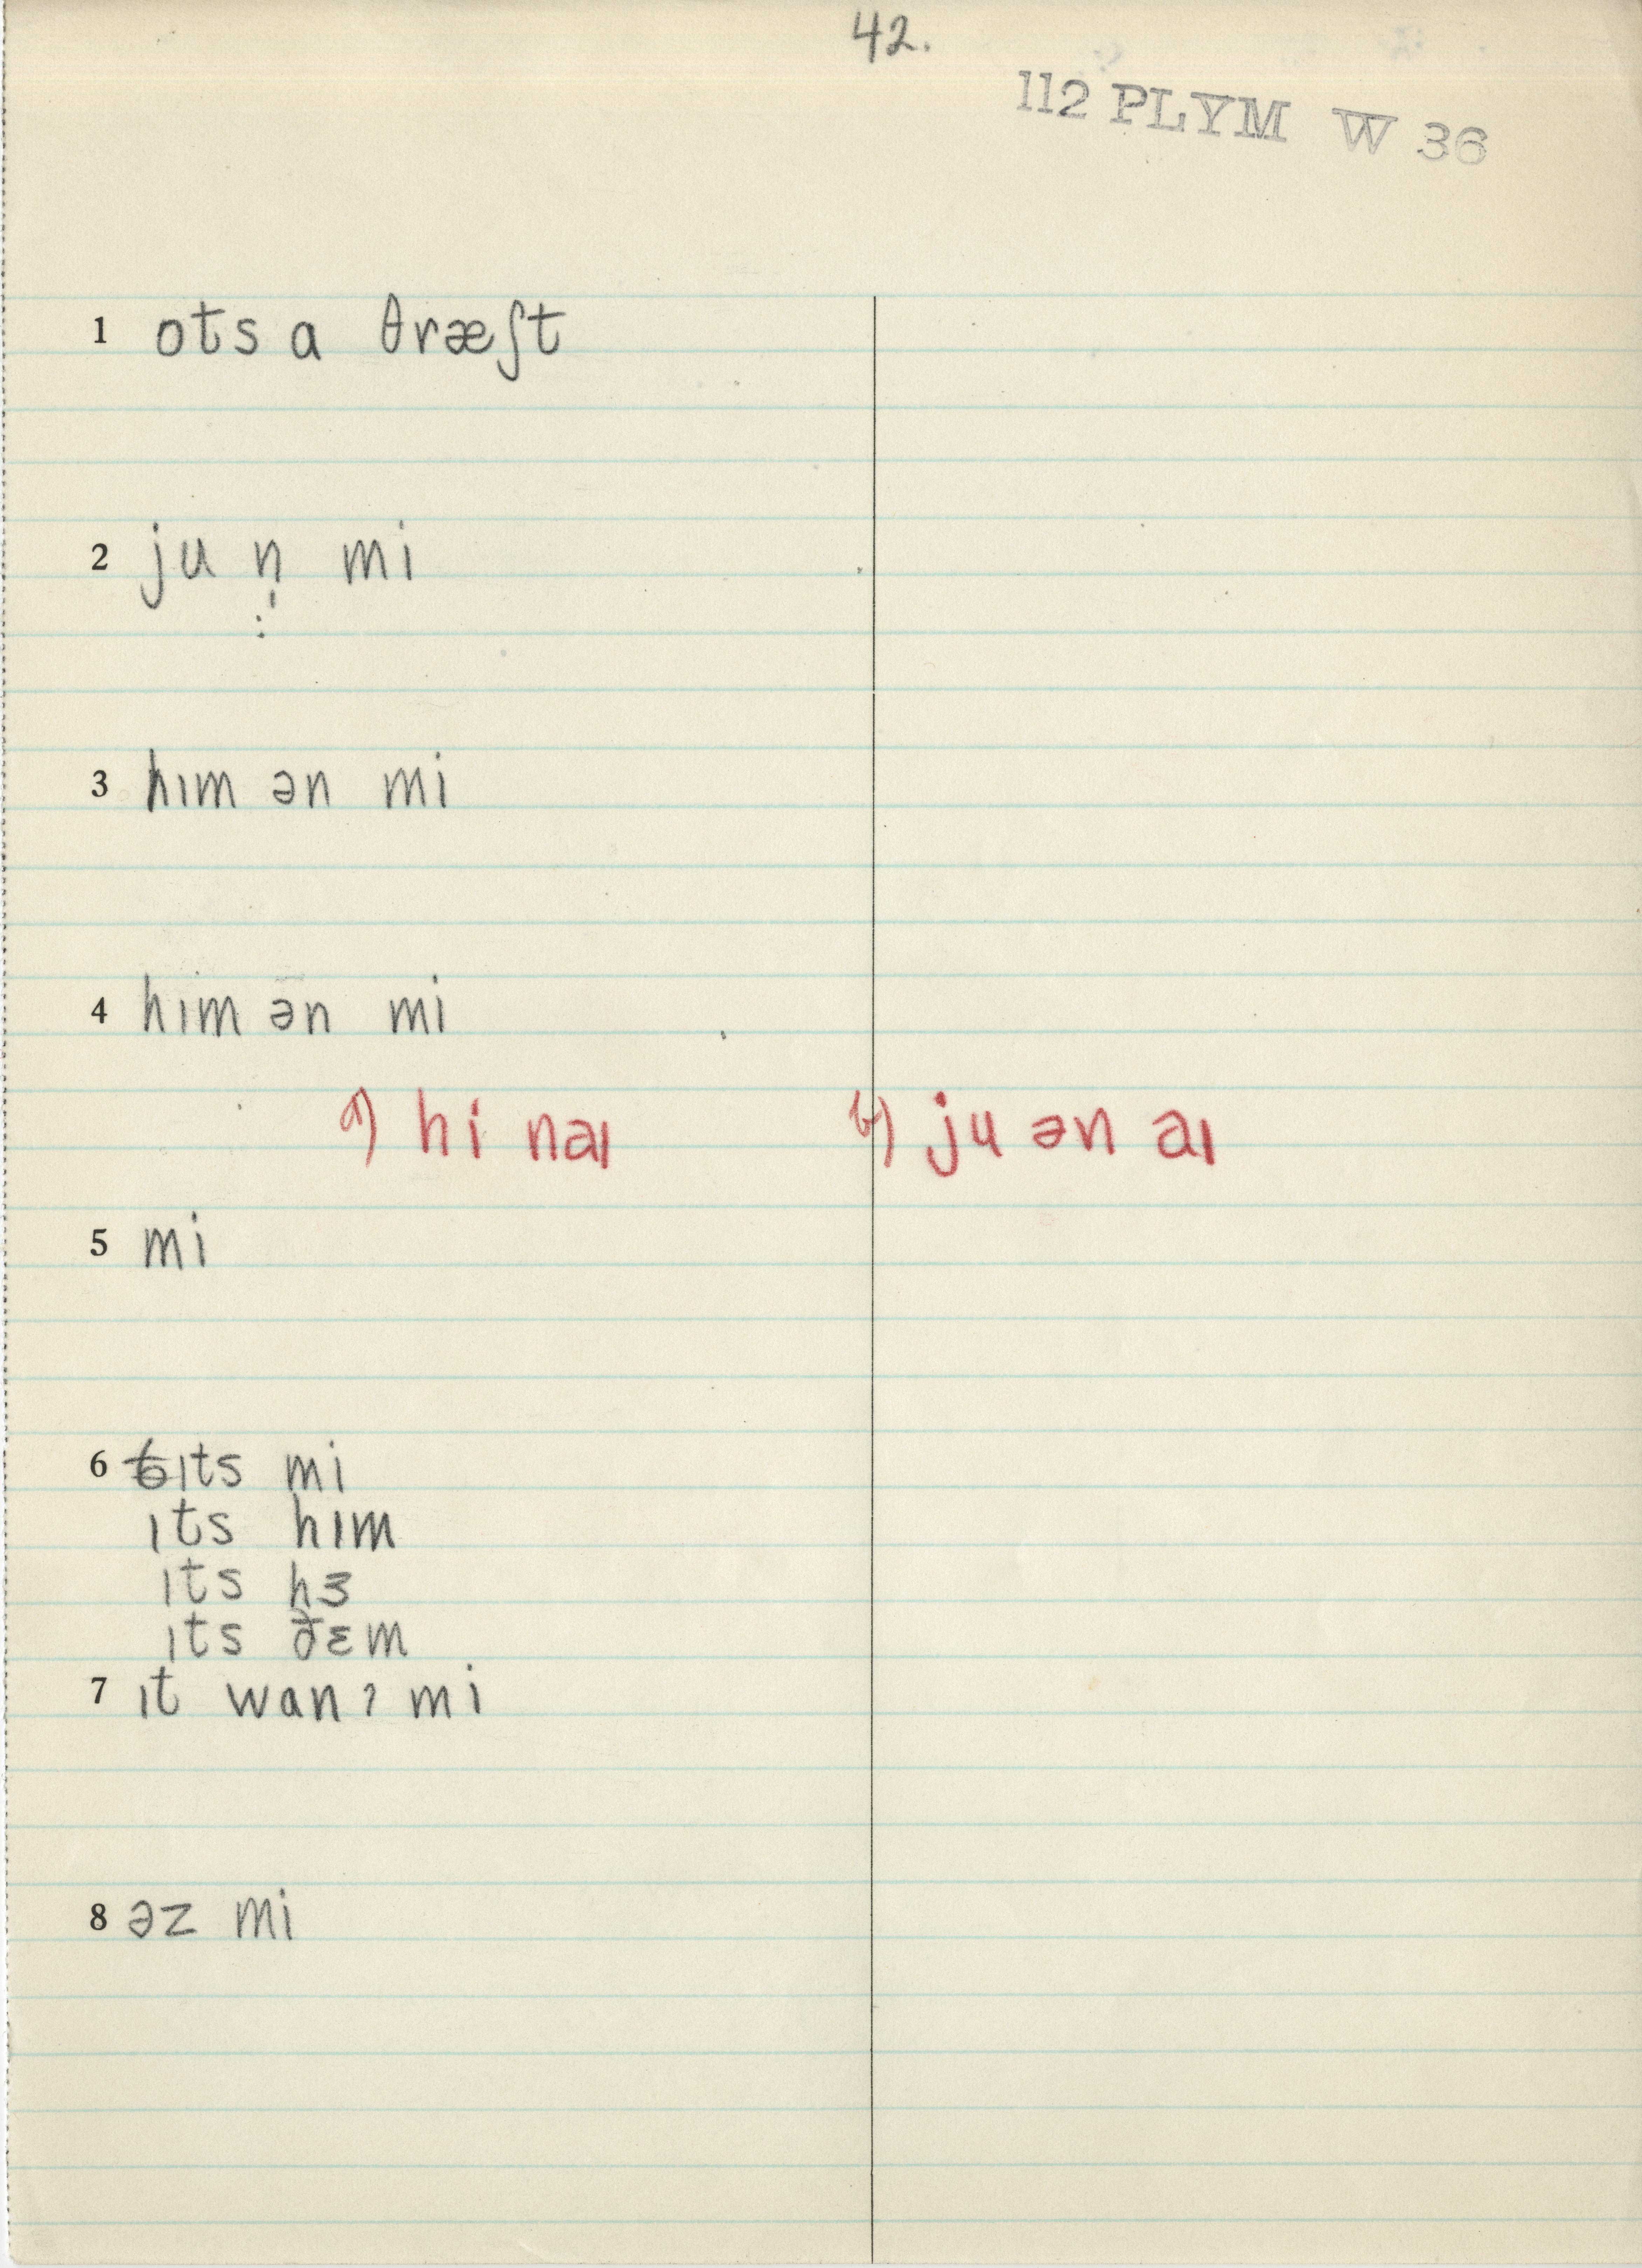 42.
112 PLYM W 36
1 ots a θræʃt
2 ju n̩ mi
3 hım ən mi
4 hım ən mi
a) hi naı b) ju ən aı
5 mi
6 ıts mi
ıts hım
ıts hɜ
ıts ðɛm
7 ıt wanʔ mi
8 əz mi